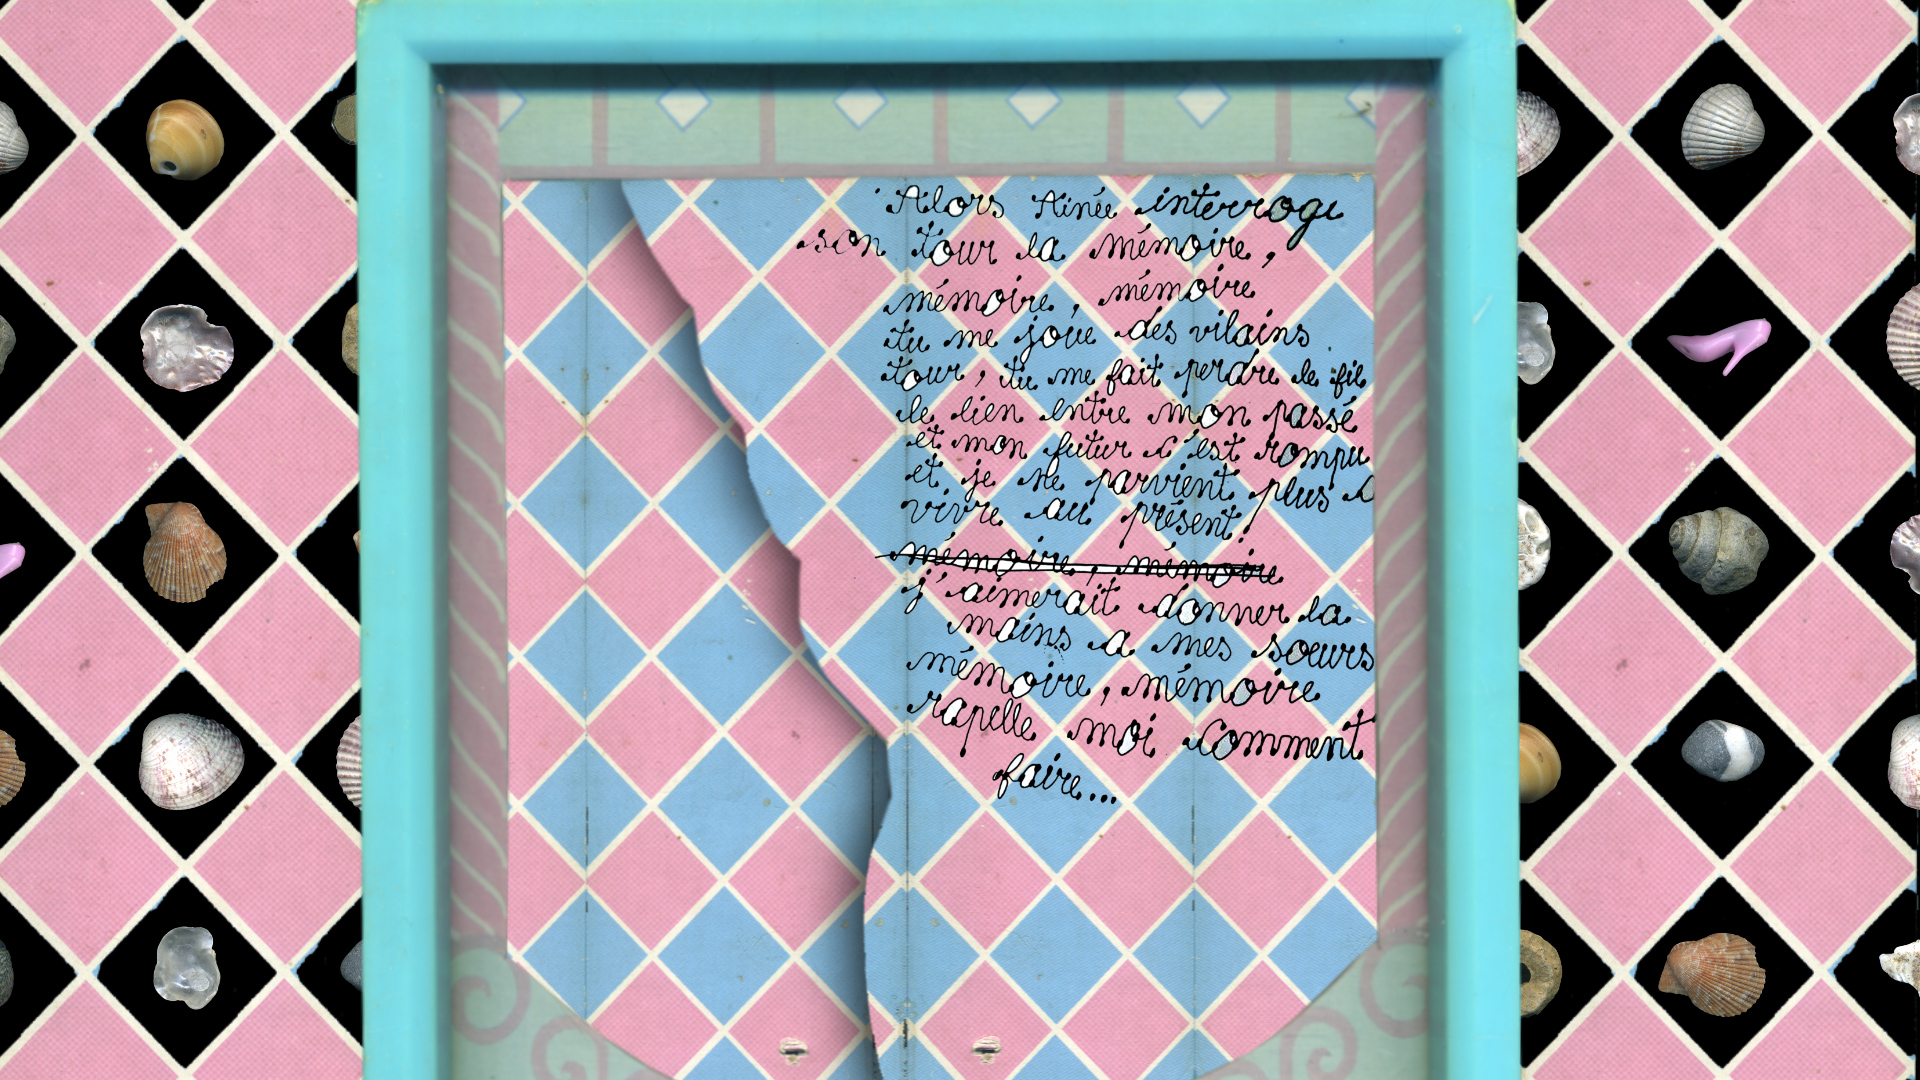 Alors Ainée interroge
son tour la mémoire,
mémoire, mémoire
tu me joue des vilains
tour, tu me fait perdre le fil
le lien entre mon passé
et mon futur c'est rompu
et je ne parvient plus a
vivre au présent!
mémoire, mémoire
j'aimerait donner la
mains a mes sœurs
mémoire, mémoire
rapelle moi comment
faire...